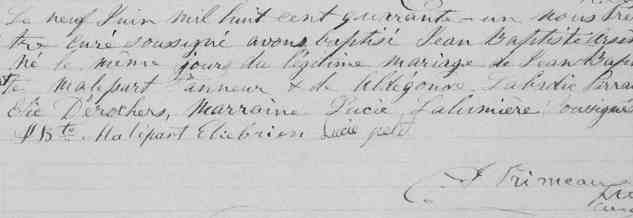 Le neuf Juin mil huit cent quarante-un nous
tre curé soussigné avons baptisé Jean Baptiste
né le même jour du légitime mariage de Jean Bap
te Malepart Tanneur & de Aldégonde Labrolie Parra
Elie Dérochers, Marraine Lucie Lalumière soussigné
J Bte Malepart Elie
J Primeau